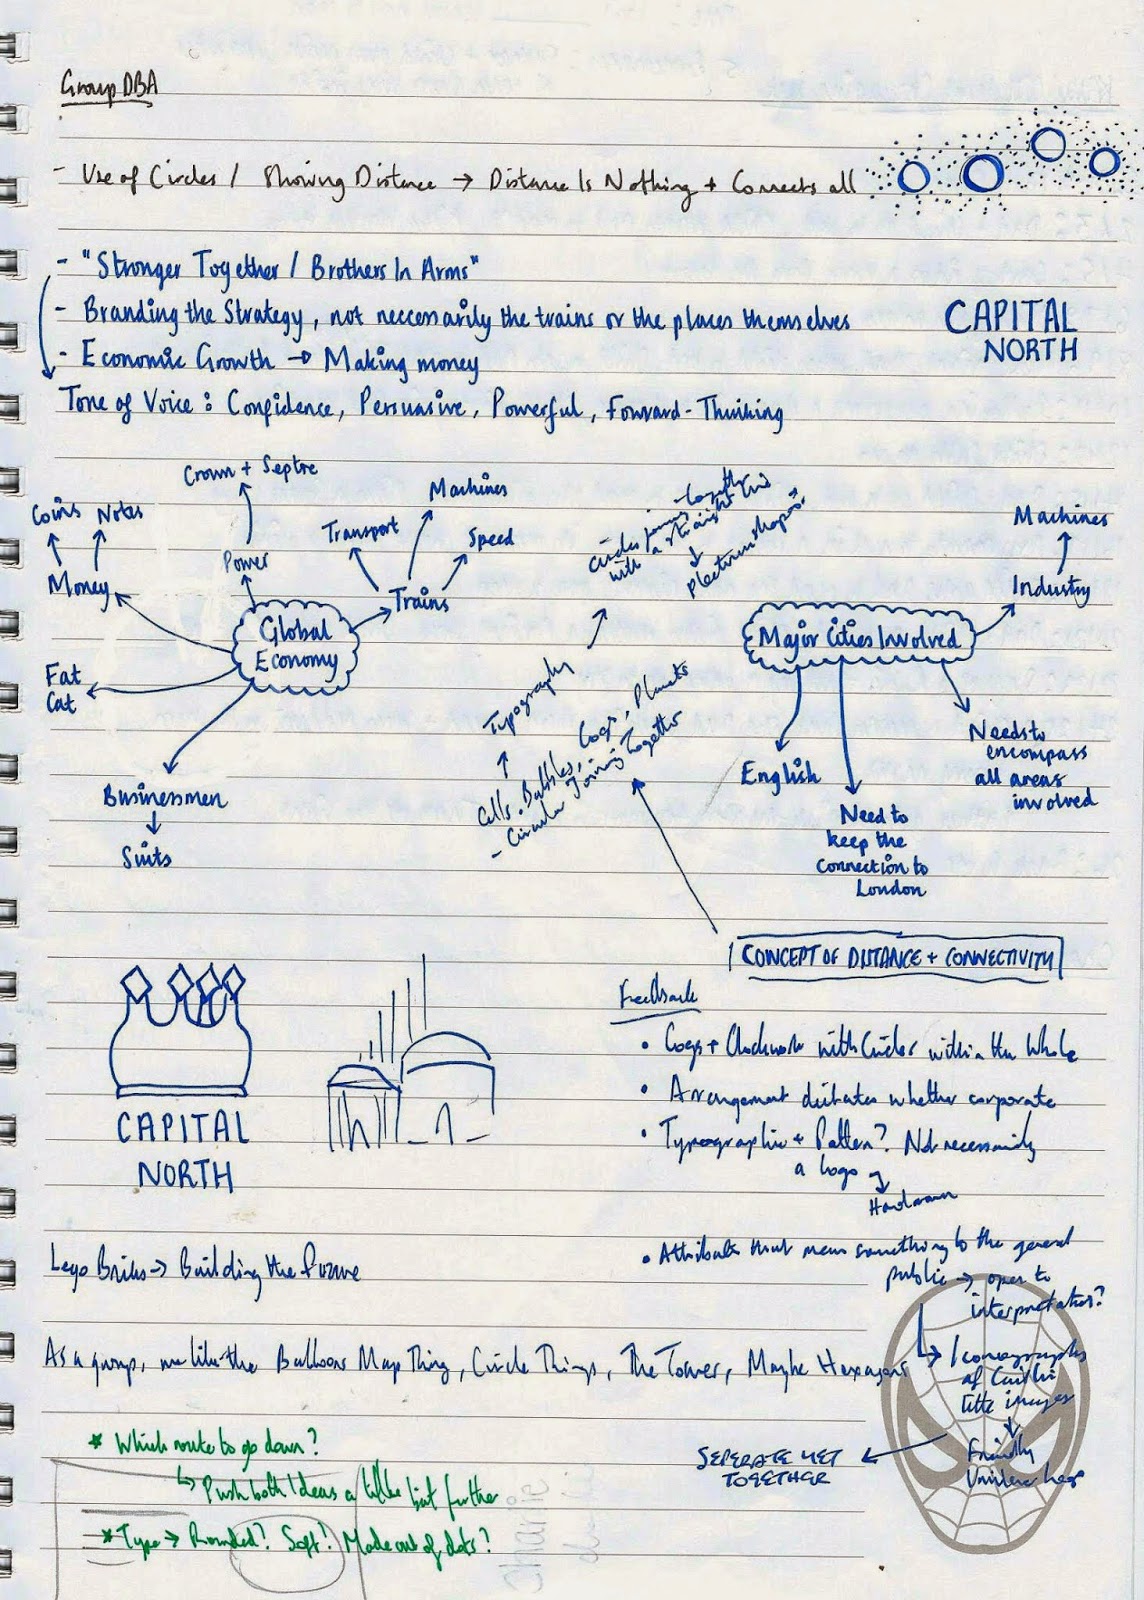 Group DBA
- Use of Circles / Showing Distance → Distance Is Nothing + Connects all
- "Stronger Together / Brothers In Arms"
- Branding the Strategy, not neccessarily the trains or the places themselves
- Economic Growth → Making money
Tone of Voice : Confidence, Persuasive, Powerful, Forward-Thinking
CAPITAL
NORTH
Crown + Septre
Coins Notes
Money
Power
Transport
Machines
Speed
Trains
Global
Economy
Fat
Cat
Businessmen
Suits
Circles joining together
with a straight line
plectrum shapes?
Typography
Cells, Bubbles, Cogs, Planets
- Circular Joining Together
Machines
Industry
Major Cities Involved
English
Need to
keep the
connection to
London
Needs to
encompass
all areas
involved
CONCEPT OF DISTANCE + CONNECTIVITY
Feedback
• Cogs + Clockwork with Circles within the Whole
• Arrangement dictates whether corporate
• Typographic + Pattern? Not necessarily
a logo
Hand drawn
• Attributes that mean something to the general
public → open to
interpretation?
Iconography
of
little images
Friendly
CAPITAL
NORTH
Lego Briks → Building the future
As a group, we like the Balloons Map Thing, Circle Things, The Tower, Maybe Hexagons
SEPERATE YET
TOGETHER
* Which route to go down?
↳ Push both Ideas a little bit further
* Type → Rounded? Soft? Made out of dots?